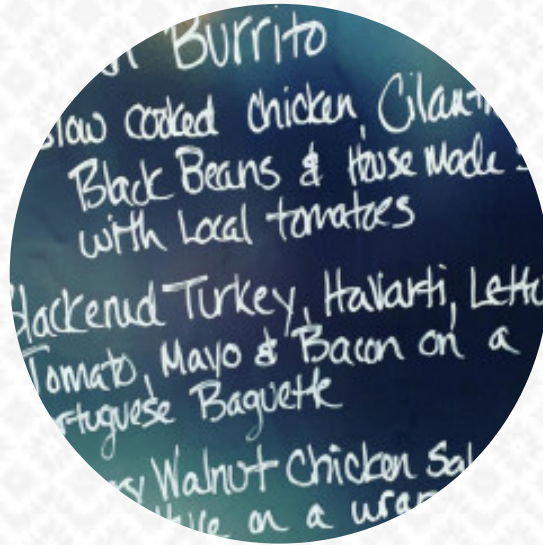 Burrito
slow cooked chicken, Cilant
Black Beans & House Made
with Local tomatoes
lackened Turkey, Havarti, Lettu
Tomato, Mayo & Bacon on a
rtuguese Baguette
Walnut Chicken Sal
on a wrap